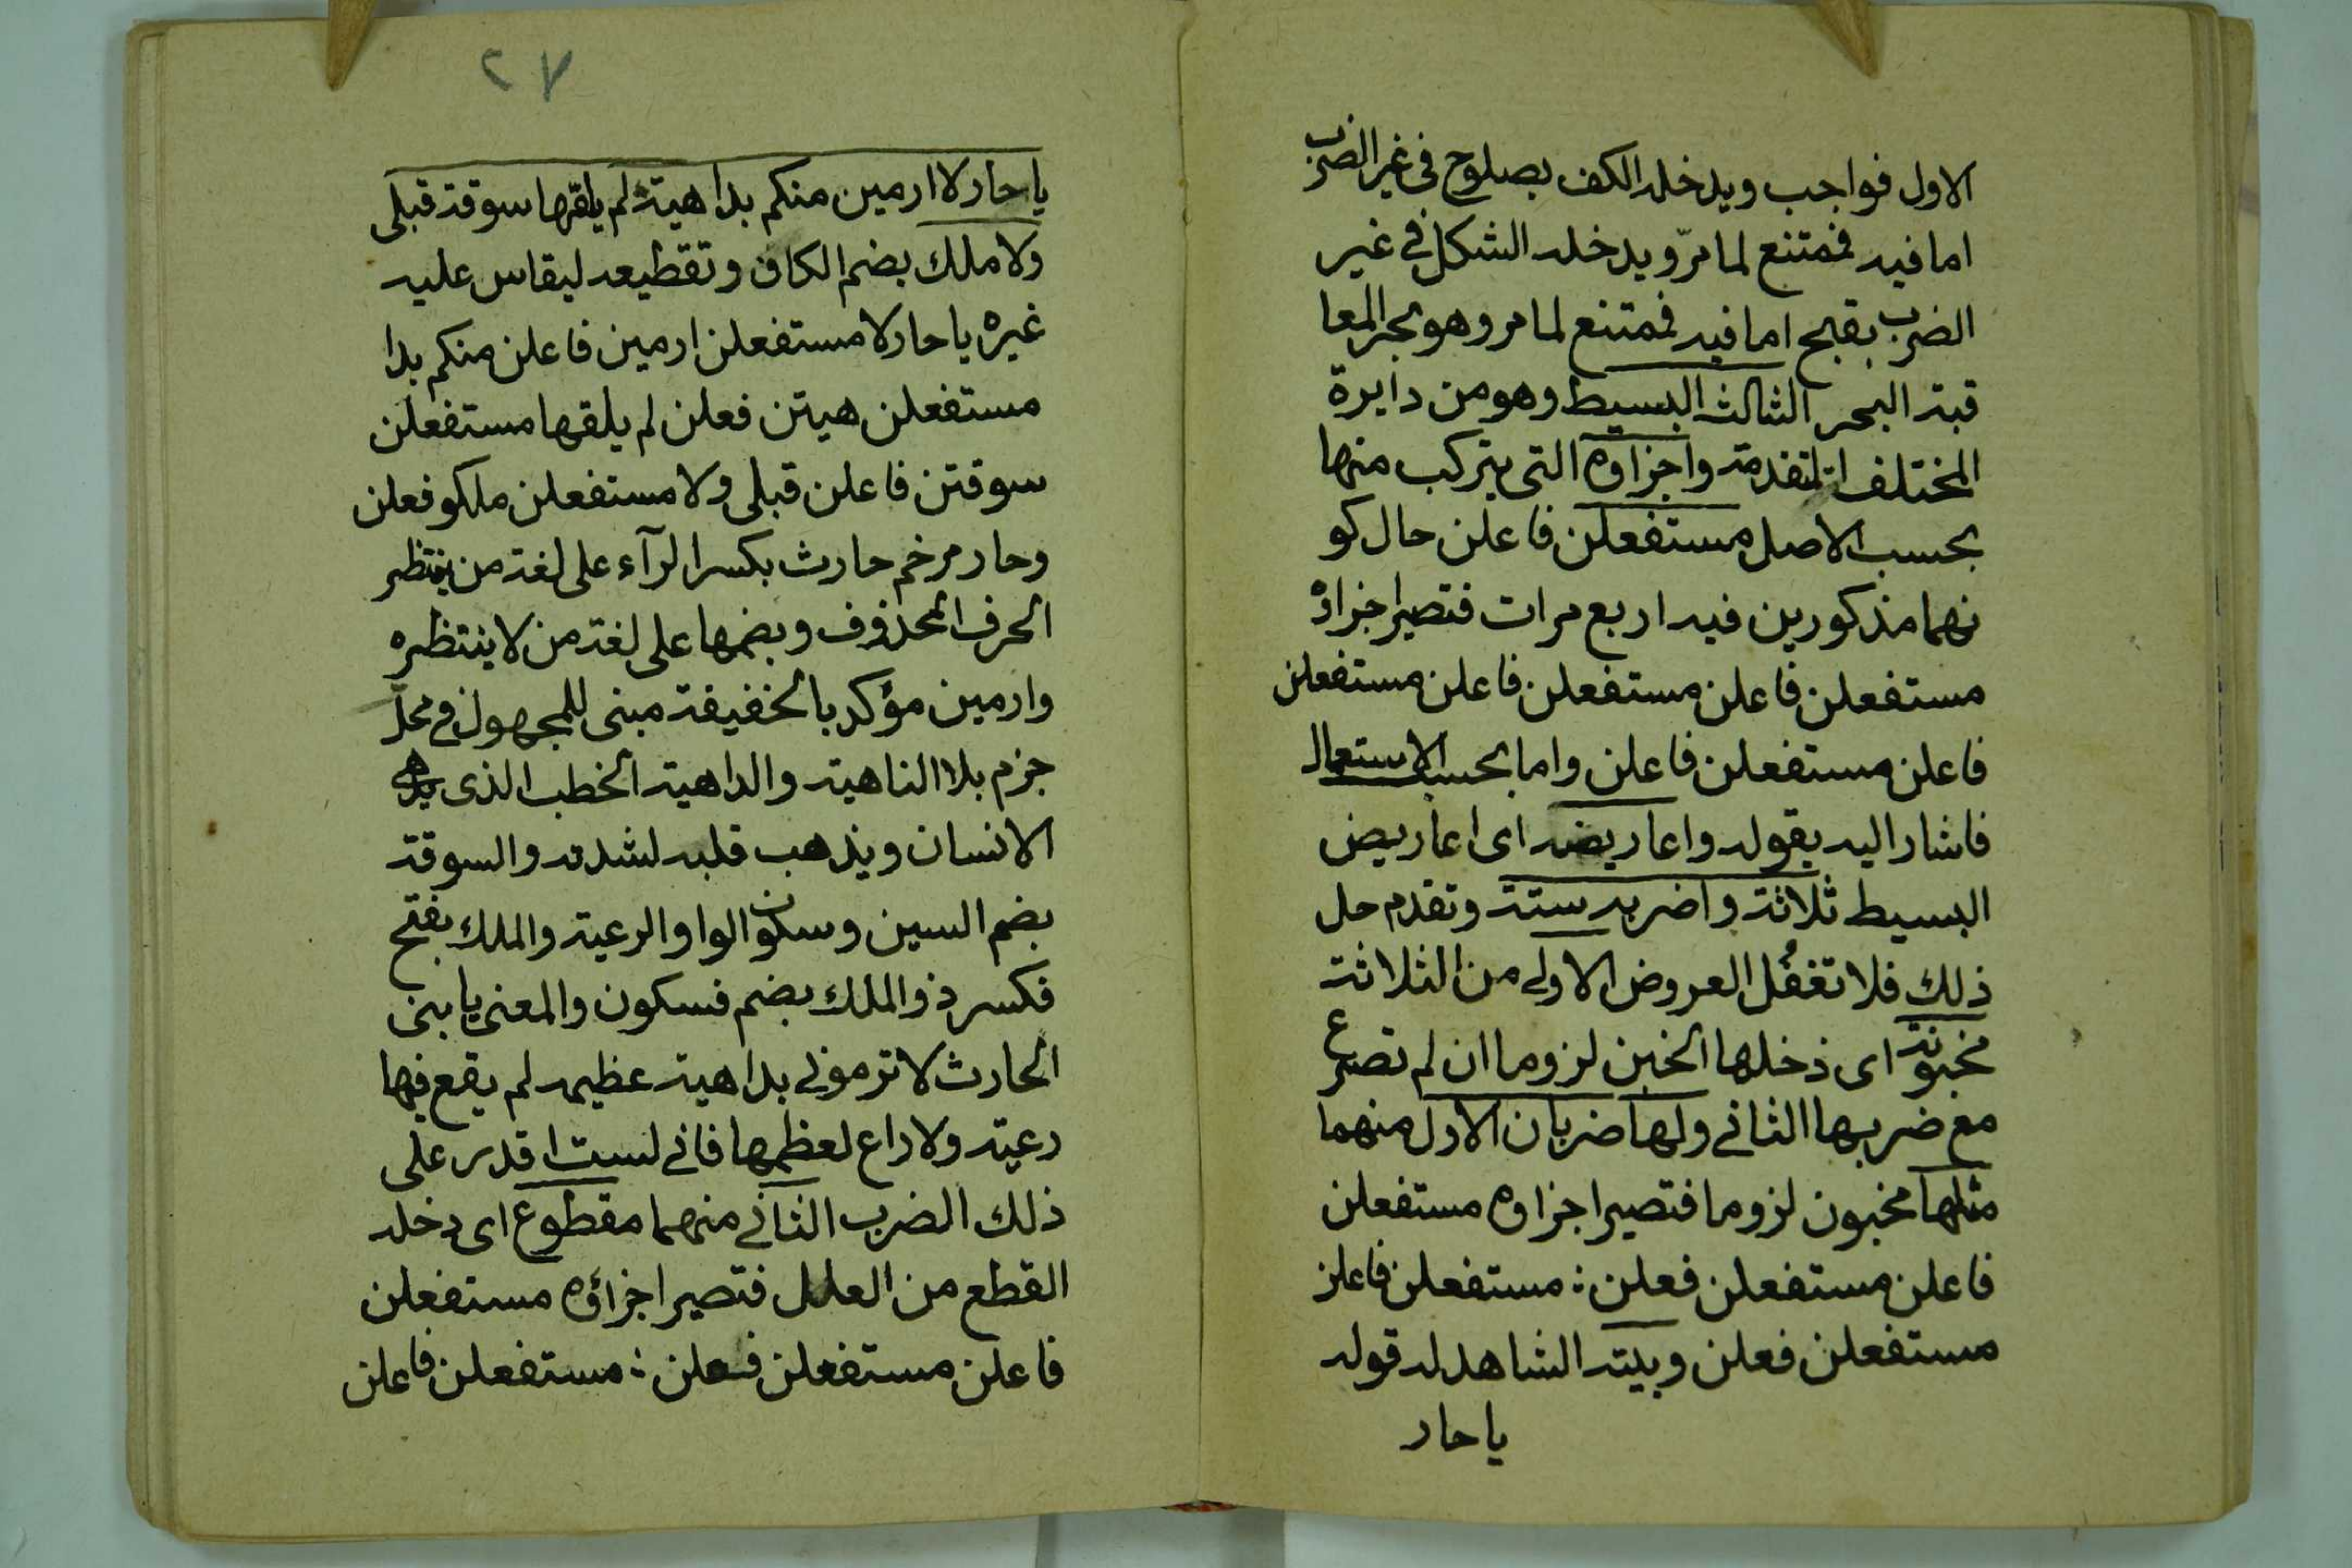 الاول فواجب ويدخله الكف بصلوح في غير الضرب
اما فيه فمتنع لما مرّ ويدخله الشكل في غير
الضرب بقبح اما فيه فمتنع لما مر وهو بحر المعا
قبة البحر الثالث البسيط وهو من دايرة
المختلف المتقدمة واجزاؤه التي يتركب منها
بحسب الاصل مستفعلن فاعلن حال كو
نهما مذكورين فيه اربع مرات فتصير اجزاؤه
مستفعلن فاعلن مستفعلن فاعلن مستفعلن
فاعلن مستفعلن فاعلن واما بحسب الاستعمال
فاشار اليه بقوله واعاريضه اى اعاريض
البسيط ثلاثة واضربه ستة وتقدم حل
ذلك فلا تغفُل العروض الاولى من الثلاثة
مخبونة اى دخلها الخبن لزوما ان لم تصرع
مع ضربها الثاني ولها ضربان الاول منهما
مثلها مخبون لزوما فتصير اجزاوه مستفعلن
فاعلن مستفعلن فعلن : مستفعلن فاعلن
مستفعلن فعلن وبيته الشاهد له قوله
يا حار
٢٧
يا حار لا ارمين منكم بداهية لم يلقها سوقة قبلى
ولا ملك بضم الكاف وتقطيعه ليقاس عليه
غيره يا حار لا مستفعلن ارمين فاعلن منكم بدا
مستفعلن هيتن فعلن لم يلقها مستفعلن
سوقتن فاعلن قبلى ولا مستفعلن ملكو فعلن
وحار مرخم حارث بكسر الرآء على لغة من ينتظر
الحرف المحذوف وبضمها على لغة من لا ينتظره
وارمين مؤكد بالخفيفة مبنى للمجهول في محلّ
جزم بلا الناهية والداهية الخطب الذى
الانسان ويذهب قلبه لشدته والسوقة
بضم السين وسكون الواو الرعية والملك بفتح
فكسر ذو الملك بضم فسكون والمعنى يا بنى
الحارث لا ترموني بداهية عظيمه لم يقع فيها
رعية ولا راع لعظمها فاني لست اقدر على
ذلك الضرب الثاني منهما مقطوع اى دخله
القطع من العلل فتصير اجزاؤه مستفعلن
فاعلن مستفعلن فعلن : مستفعلن فاعلن